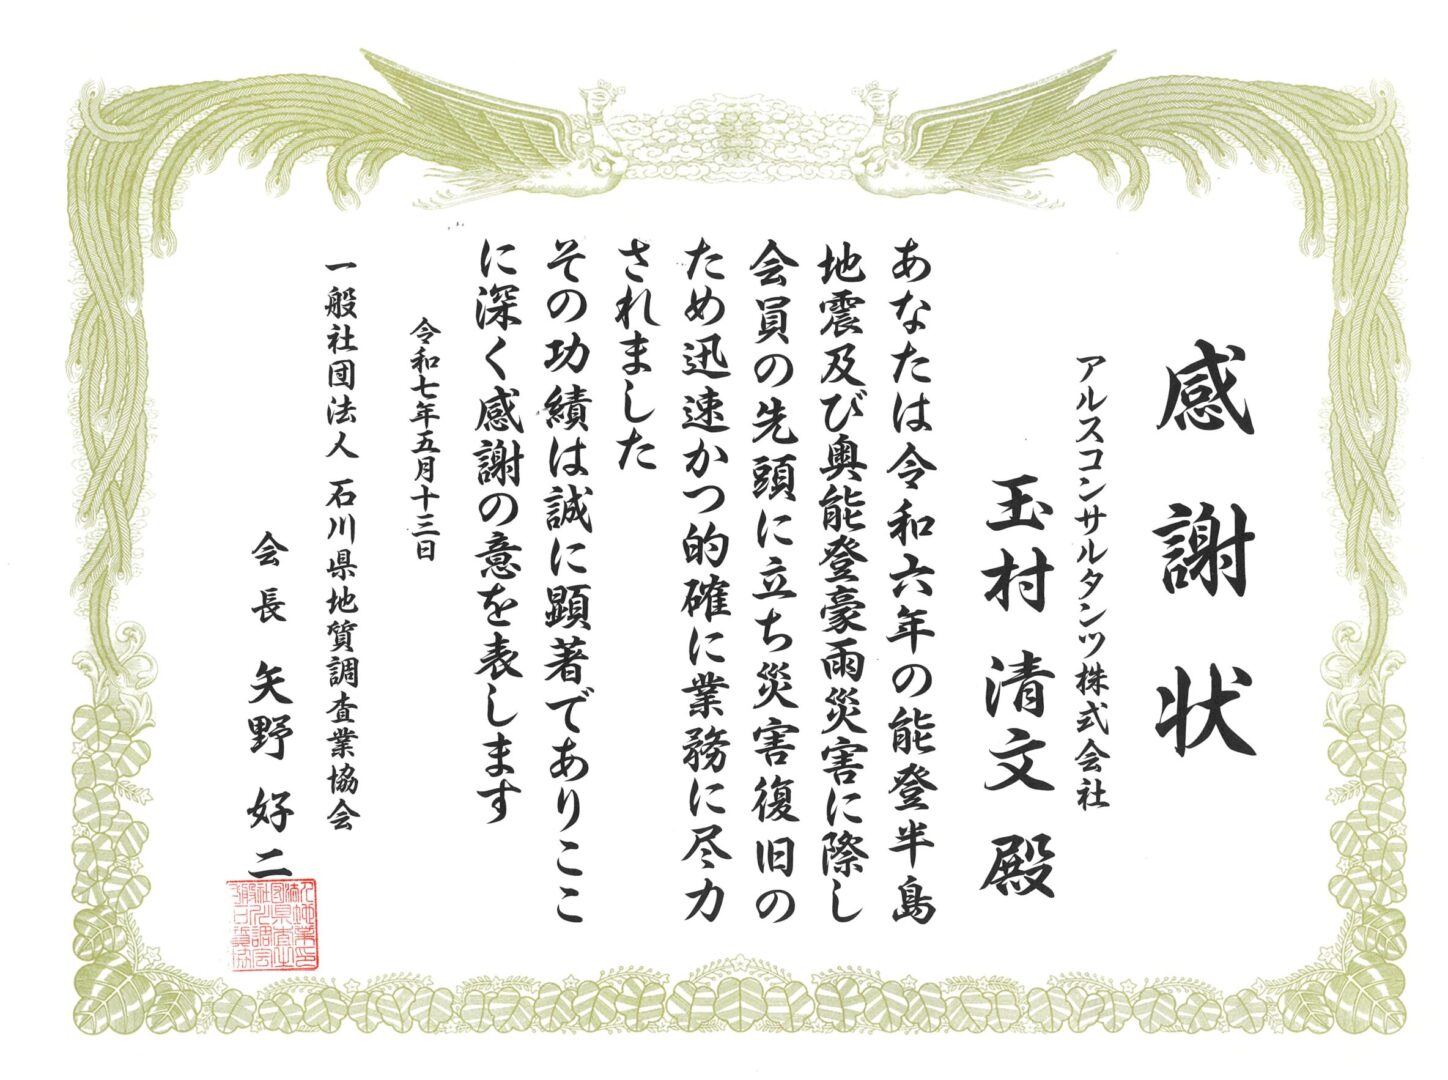 感謝状
アルスコンサルタンツ株式会社
玉村清文殿
あなたは令和六年の能登半島
地震及び奥能登豪雨災害に際し
会員の先頭に立ち災害復旧の
ため迅速かつ的確に業務に尽力
されました
その功績は誠に顕著でありここ
に深く感謝の意を表します
令和七年五月十三日
一般社団法人 石川県地質調査業協会
会長 矢野好二